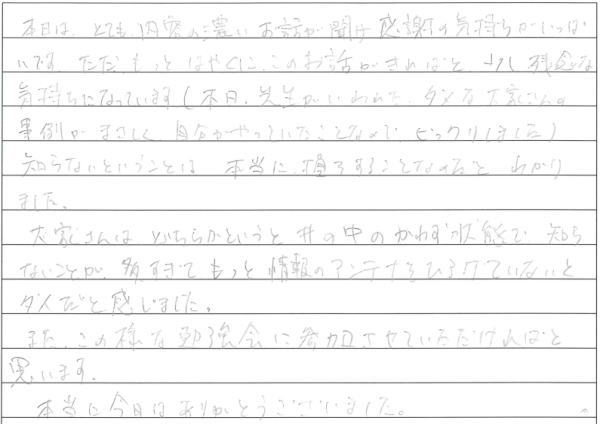 本日は、とても内容の濃いお話が聞け感謝の気持ちがいっぱ
いです。ただ、もっとはやくに、このお話がきければと、少し残念な
気持ちになっています（本日、先生がいわれた、ダメな大家さんの
事例がまさしく、自分がやっていたことなので、ビックリしました）
知らないということは、本当に、損をすることなのだと、わかり
ました。
大家さんは、どちらかというと井の中のかわず状態で、知ら
ないことが、多すぎて、もっと情報のアンテナをひろげていないと
ダメだと感じました。
また、この様な勉強会に参加させていただければと
思います。
本当に今日はありがとうございました。